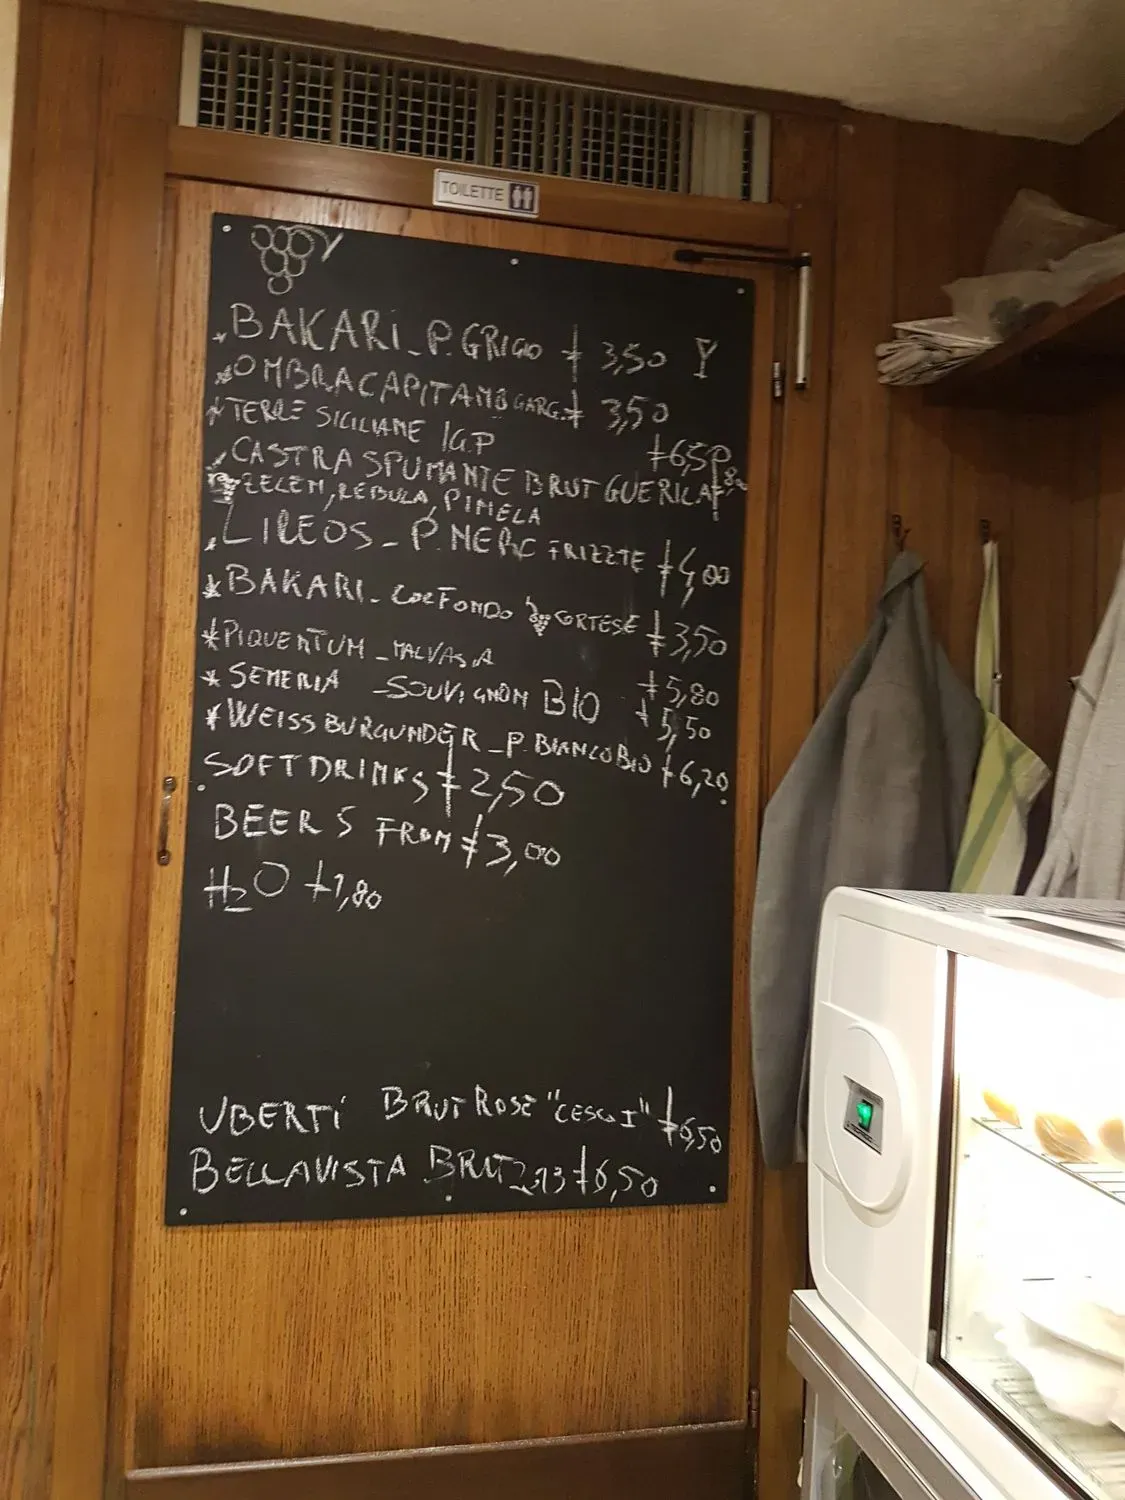 TOILETTE
BAKARI - P. GRIGIO € 3,50
OMBRA CAPITANO GARG. € 3,50
TERRE SICILIANE IGP €6,50
CASTRA SPUMANTE BRUT GUERILA €
ZELEN, REBULA, PINELA
LIREOS - P. NERO FRIZZTE €4,00
BAKARI - COLFONDO CORTESE €3,50
PIQUENTUM - MALVASIA €5,80
SEMERIA - SOUVIGNON BIO €5,50
WEISSBURGUNDER - P. BIANCO BIO €6,20
SOFT DRINKS €2,50
BEERS FROM €3,00
H2O €1,80
UBERTI BRUT ROSE "CESCO I" €6,50
BELLAVISTA BRUT 2013 €6,50